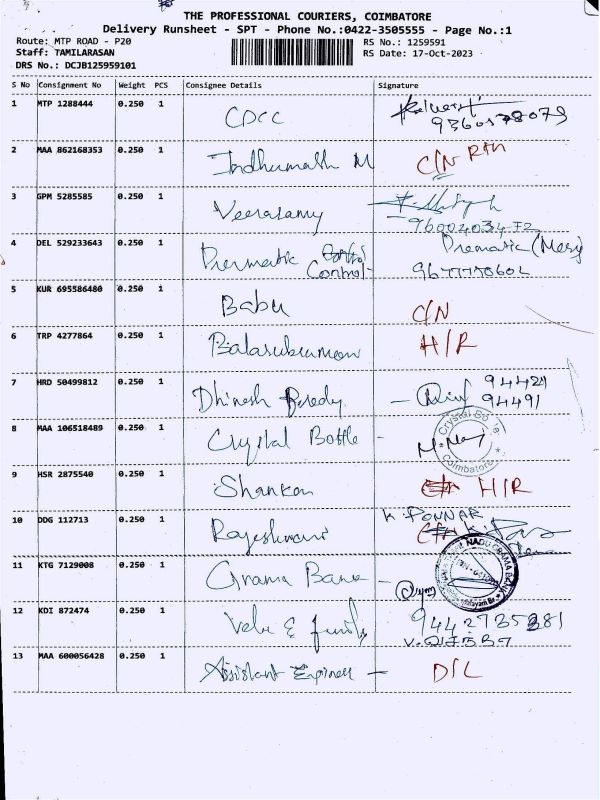 THE PROFESSIONAL COURIERS, COIMBATORE
Delivery Runsheet - SPT - Phone No.:0422-3505555 - Page No.:1
Route: MTP ROAD - P20 RS No.: 1259591
Staff: TAMILARASAN RS Date: 17-Oct-2023
DRS No.: DCJB125959101
S No Consignment No Weight PCS Consignee Details Signature
1 MTP 1288444 0.250 1 CDCC
2 MAA 862168353 0.250 1 Indhumath M C/N RTN
3 GPM 5285585 0.250 1 Veerasamy
9600403472
4 DEL 529233643 0.250 1 Dremratic Control
5 KUR 695586480 0.250 1 Babu C/N
6 TRP 4277864 0.250 1 Balasubramon H/R
7 HRD 50499812 0.250 1 Dhinesh Reedy - 94421
94491
8 MAA 106518489 0.250 1 Crystal Bottle - Crystal Coimbatore
9 HSR 2875540 0.250 1 Shankar H/R
10 DDG 112713 0.250 1 Rajeshwari K. PONNAR
11 KTG 7129008 0.250 1 Grama Bank - TAMIL NADU GRAMA BANK
12 KDI 872474 0.250 1 Velu & family 9442735381
V. வசந்தா
13 MAA 600056428 0.250 1 Assistant Enginer - D/L